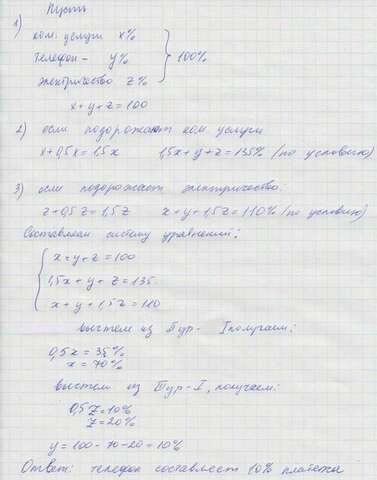 Пусть
1)
ком. услуги x%
телефон - y%
электричество z%
100%
x+y+z=100
2) если подорожают ком. услуги
x+0,5x=1,5x 1,5x+y+z=135% (по условию)
3) если подорожает электричество:
z+0,5z=1,5z x+y+1,5z=110% (по условию)
Составляем систему уравнений:
x+y+z=100
1,5x+y+z=135
x+y+1,5z=110
вычтем из II ур- I получаем:
0,5x=35%
x=70%
вычтем из III ур-I, получаем:
0,5z=10%
z=20%
y=100-70-20=10%
Ответ: телефон составляет 10% платежа